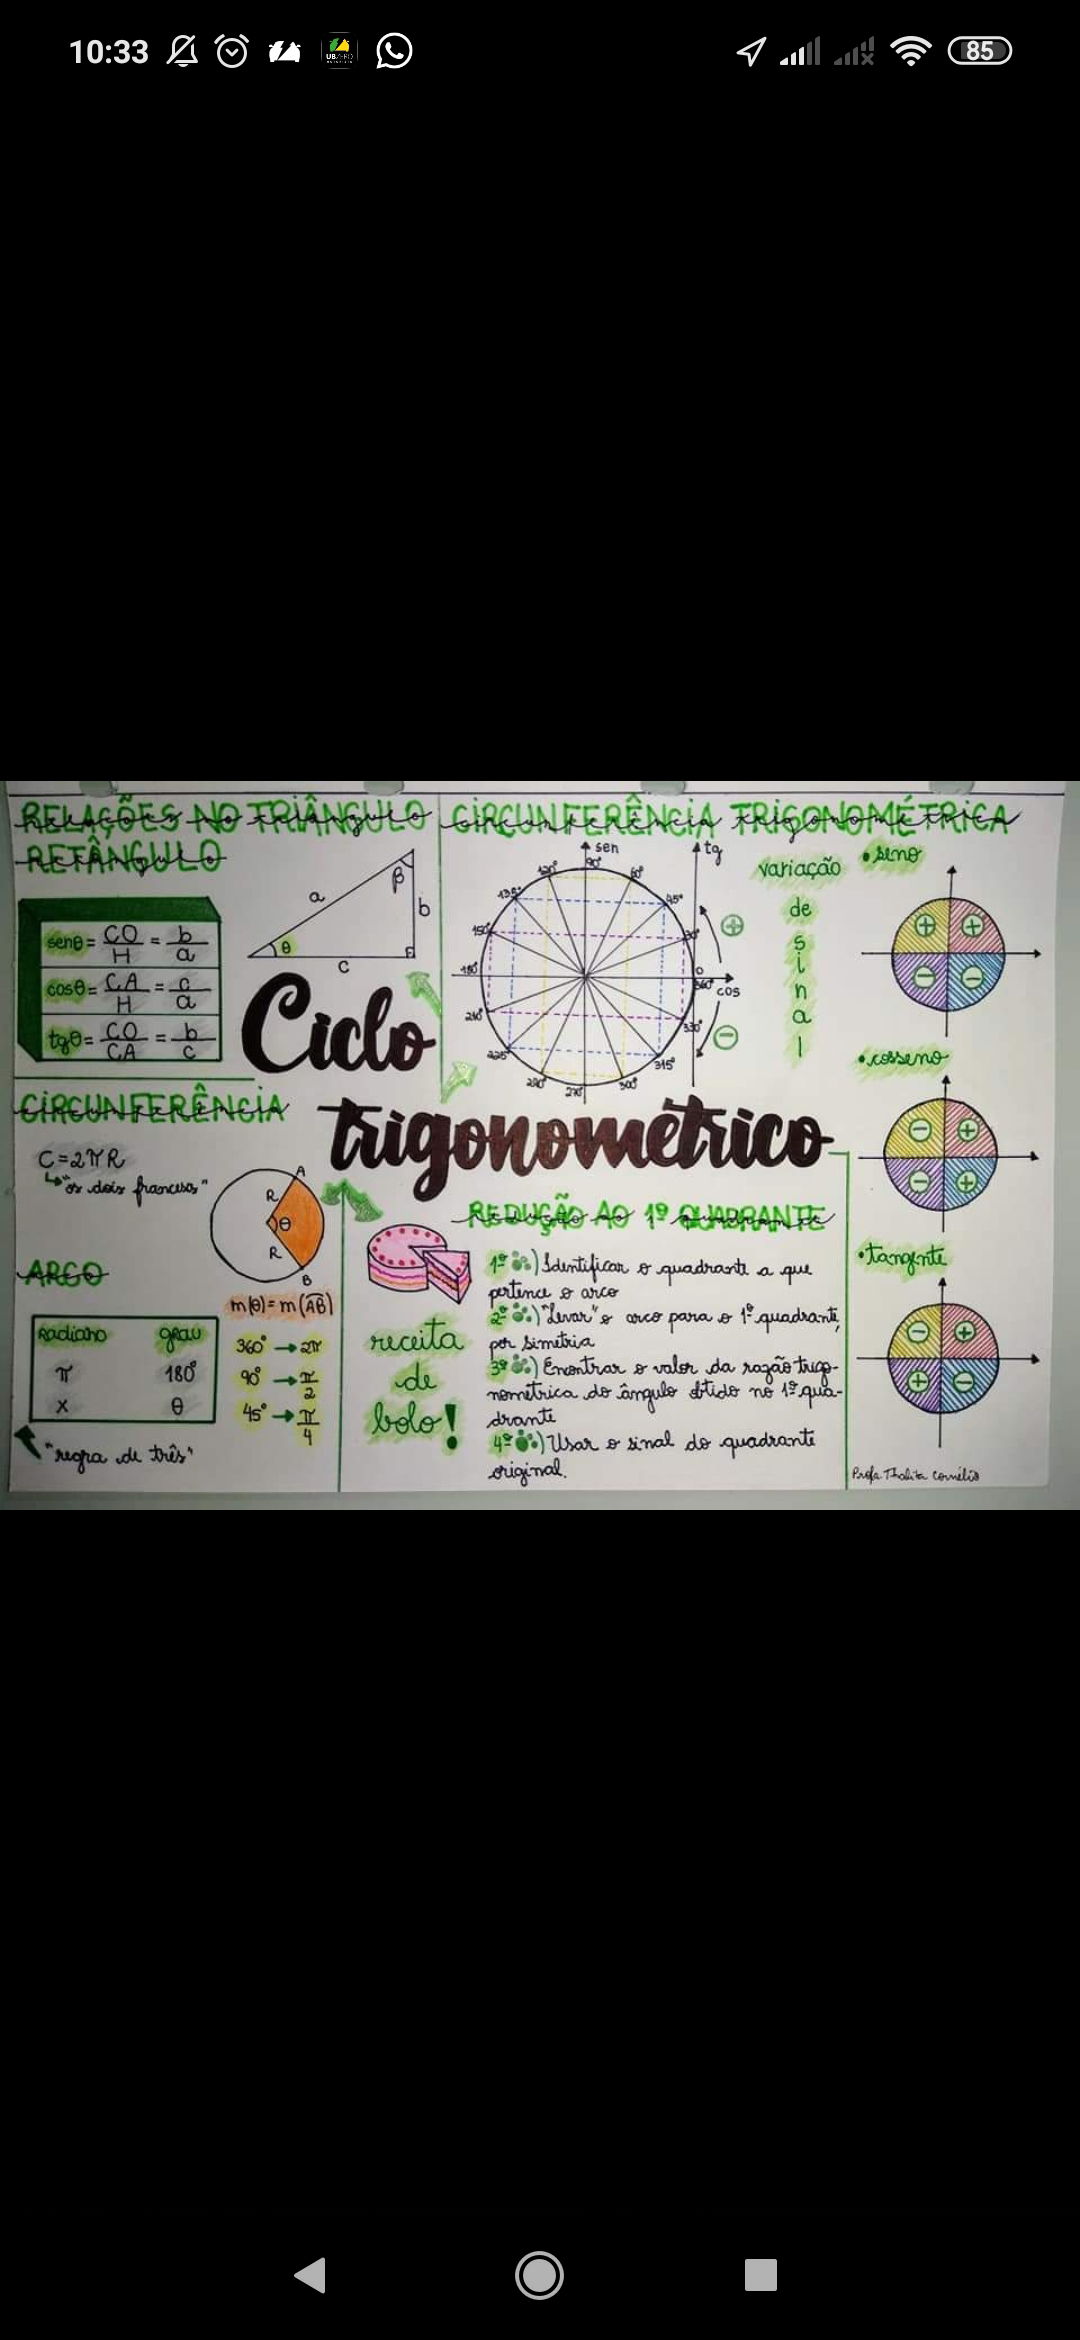 10:33
85
RELAÇÕES NO TRIÂNGULO
RETÂNGULO
senθ = CO/H = b/a
cosθ = CA/H = c/a
tgθ = CO/CA = b/c
a
β
b
θ
c
CIRCUNFERÊNCIA TRIGONOMÉTRICA
sen
tg
cos
90°
120°
60°
135°
45°
150°
30°
180°
0
360°
210°
330°
225°
315°
270°
300°
+
−
variação
de
sinal
• seno
+ +
− −
• cosseno
− +
− +
• tangente
− +
+ −
Ciclo
trigonométrico
CIRCUNFERÊNCIA
C=2πR
"os dois franceses"
A
R
θ
R
B
m(θ) = m(AB)
ARCO
Radiano grau
π 180°
x θ
"regra de três"
360° → 2π
90° → π/2
45° → π/4
REDUÇÃO AO 1º QUADRANTE
receita
de
bolo!
1º) Identificar o quadrante a que
pertence o arco
2º) "Levar" o arco para o 1º quadrante,
por simetria
3º) Encontrar o valor da razão trigo-
nométrica do ângulo obtido no 1º qua-
drante
4º) Usar o sinal do quadrante
original.
Profa Thalita Cornélio